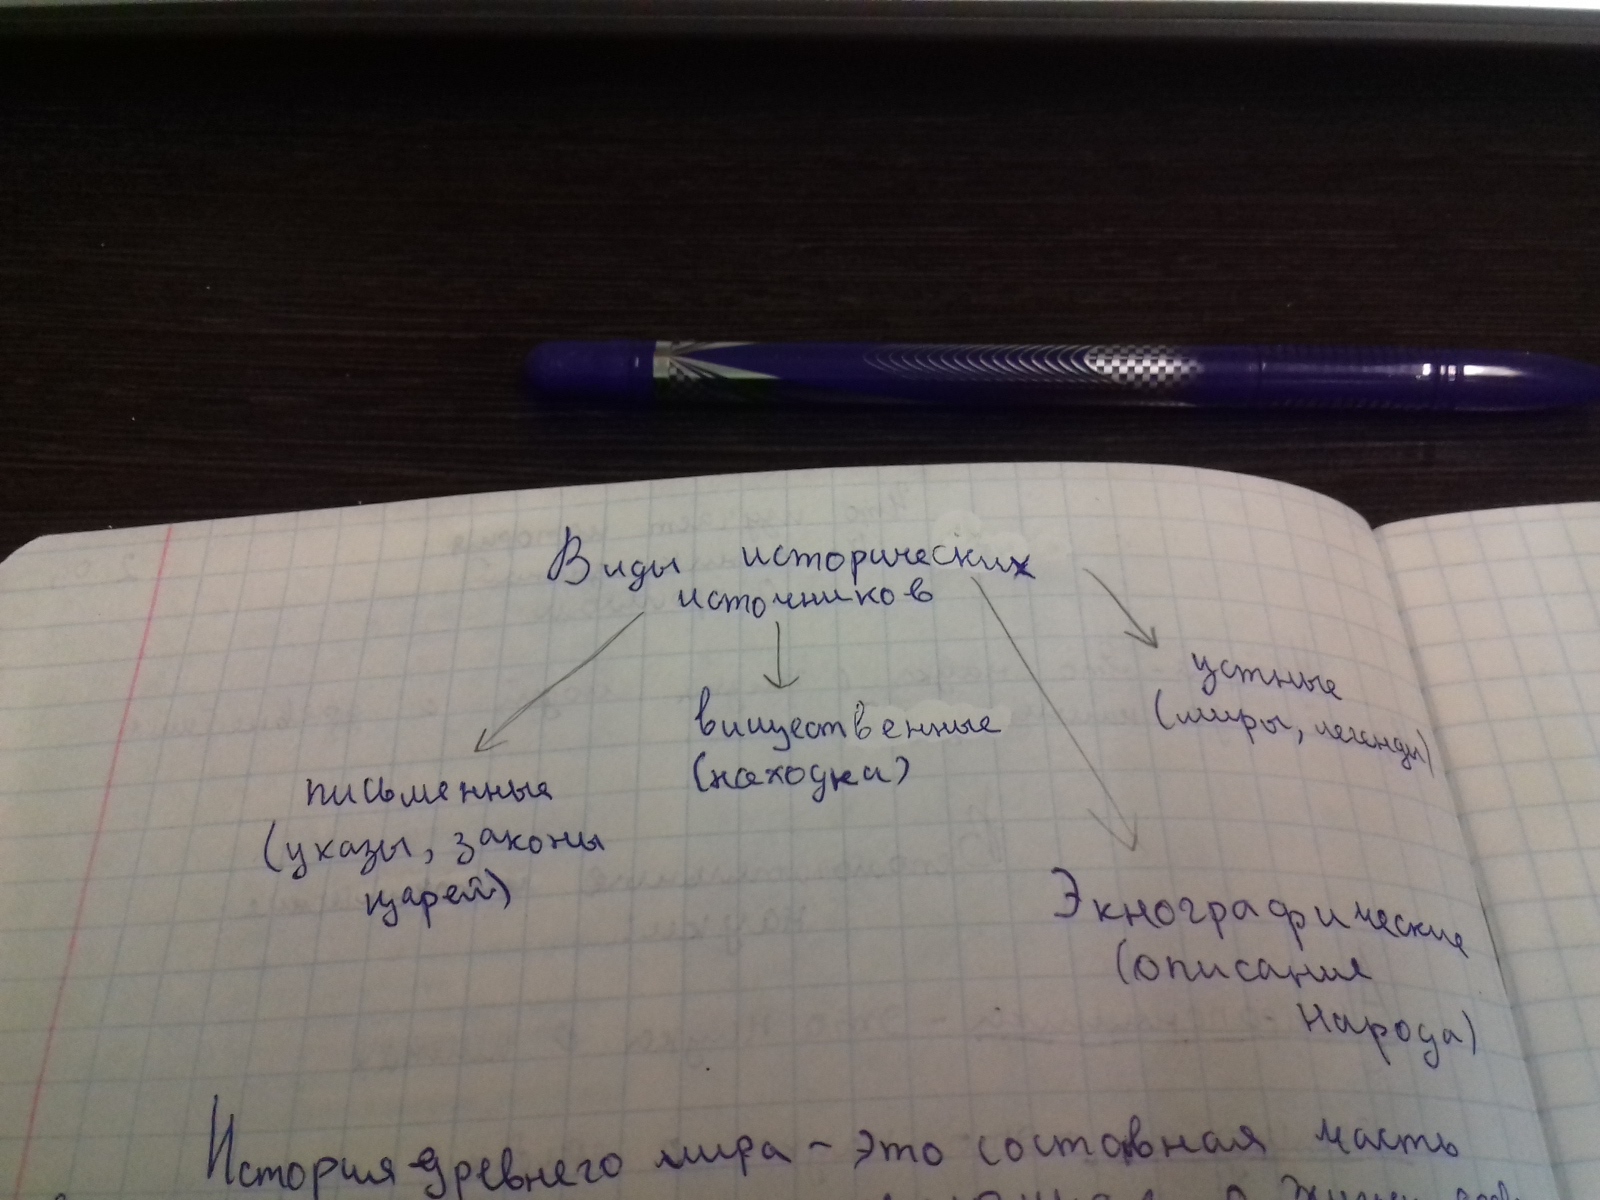 Виды исторических
источников
письменные
(указы, законы
царей)
вищественные
(находка)
устные
(миры, легенды)
Экнографические
(описание
народа)
История древнего мира - это составная часть